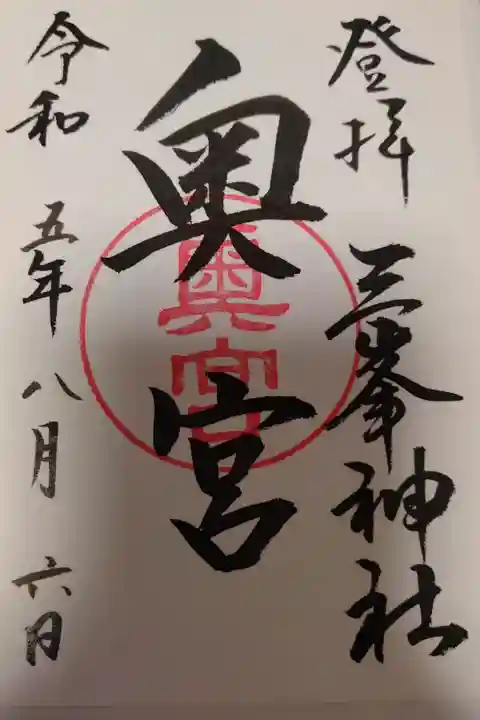 登拝 三峯神社
奥宮
奥宮
令和 五年 八月 六日